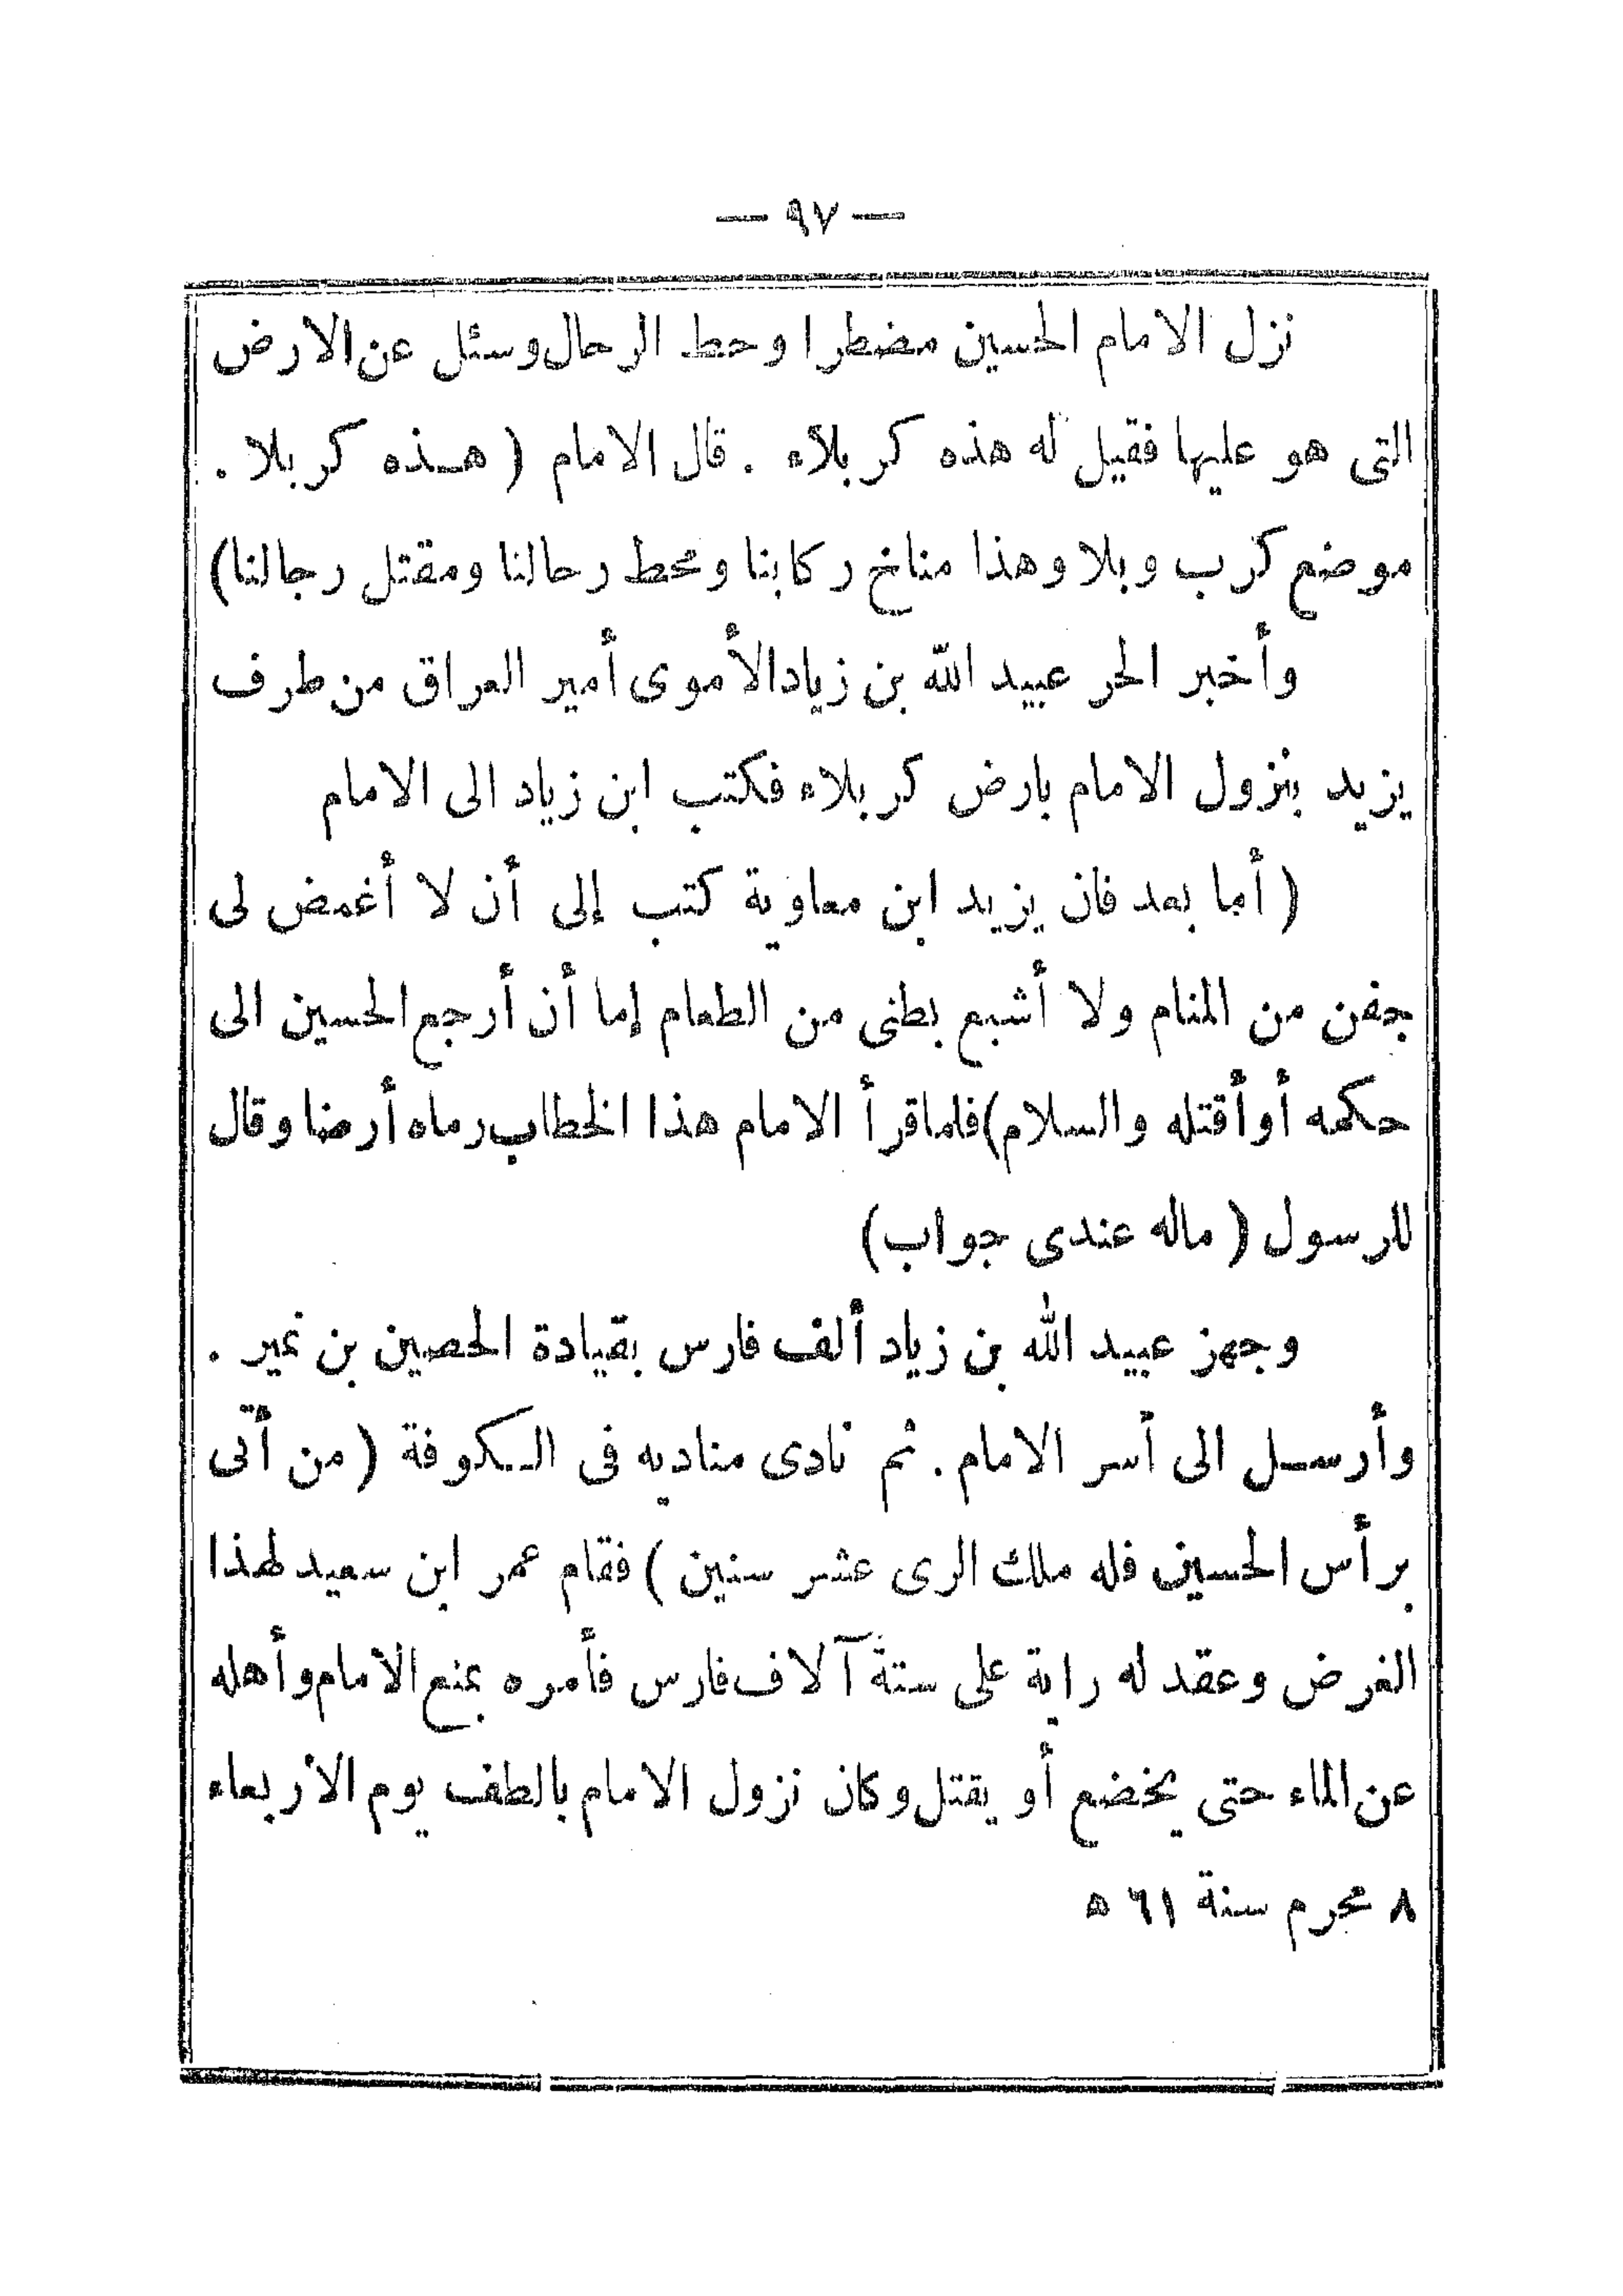 — ٩٧ —
نزل الامام الحسين مضطرا وحط الرحال وسئل عن الارض
التى هو عليها فقيل له هذه كربلاء . قال الامام ( هـذه كربلا .
موضع كرب وبلا وهذا مناخ ركابنا ومحط رحالنا ومقتل رجالنا)
وأخبر الحر عبيد الله بن زياد الأموى أمير العراق من طرف
يزيد بنزول الامام بارض كربلاء فكتب ابن زياد الى الامام
( أما بعد فان يزيد ابن معاوية كتب إلى أن لا أغمض لى
جفن من المنام ولا أشبع بطنى من الطعام إما أن أرجع الحسين الى
حكمه أو أقتله والسلام) فلما قرأ الامام هذا الخطاب رماه أرضا وقال
للرسول ( ماله عندى جواب)
وجهز عبيد الله بن زياد ألف فارس بقيادة الحصين بن نمير .
وأرسـل الى أسر الامام . ثم نادى مناديه فى الـكوفة ( من أتى
برأس الحسين فله ملك الرى عشر سنين ) فقام عمر ابن سعيد لهذا
الغرض وعقد له راية على ستة آلاف فارس فأمره بمنع الامام وأهله
عن الماء حتى يخضع أو يقتل وكان نزول الامام بالطف يوم الأربعاء
٨ محرم سنة ٦١ ه